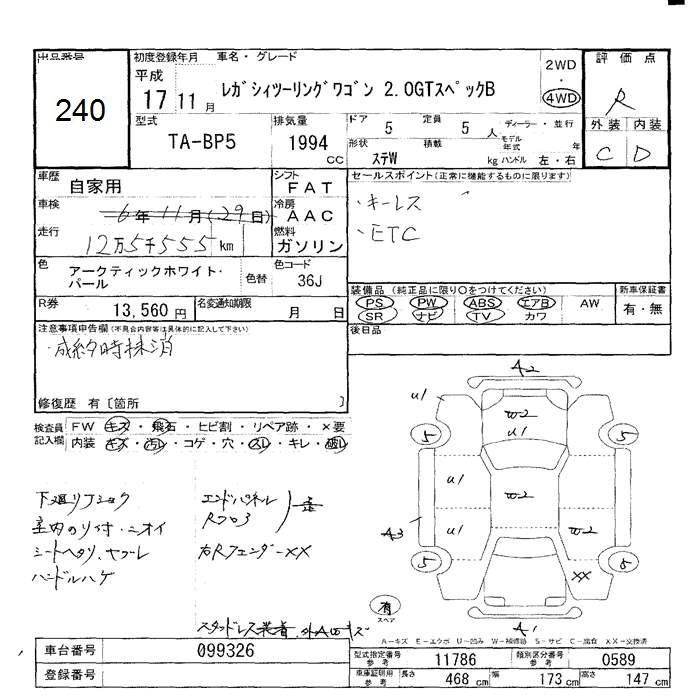 出品番号
240
初度登録年月 車名・グレード
平成
17 11月 レガシィツーリングワゴン 2.0GTスペックB
2WD
・
4WD
評価点
R
外装 内装
C D
型式 排気量 ドア 定員 ディーラー・並行
TA-BP5 1994 cc 5 5人 モデル年式 年
形状 積載
ステW kg ハンドル 左・右
車歴 自家用
シフト FAT
車検 6年11月(29日)
冷房 AAC
走行 12万5千555km
燃料 ガソリン
セールスポイント(正常に機能するものに限ります)
・キーレス
・ETC
色 アークティックホワイト・パール 色替
色コード 36J
R券 13,560円 名変通知期限 月 日
装備品(純正品に限り○をつけてください) 新車保証書
PS PW ABS エアB AW 有・無
SR ナビ TV カワ
後日品
注意事項申告欄(不具合内容等は具体的に記入して下さい)
・成約時抹消
修復歴 有〔箇所 〕
検査員記入欄 FW キズ・飛石・ヒビ割・リペア跡・×要
内装 キズ・汚レ・コゲ・穴・スレ・キレ・破レ
下廻リ
室内のり付・ニオイ
シートヘタリ、ヤブレ
ハンドルハゲ
エンドパネル
Rフロア 歪
右Rフェンダー××
スタッドレス装着、外AUキズ
A2
u1
w2
u1
5
5
u1
w2
u1
w2
A3
5
5
××
A1
有
スペア
A−キズ E−エクボ U−凹み W−補修跡 S−サビ C−腐食 ××−交換済
車台番号 099326
登録番号
型式指定番号 参考 11786 類別区分番号 参考 0589
車庫証明用 参考 長さ 468cm 幅 173cm 高さ 147cm